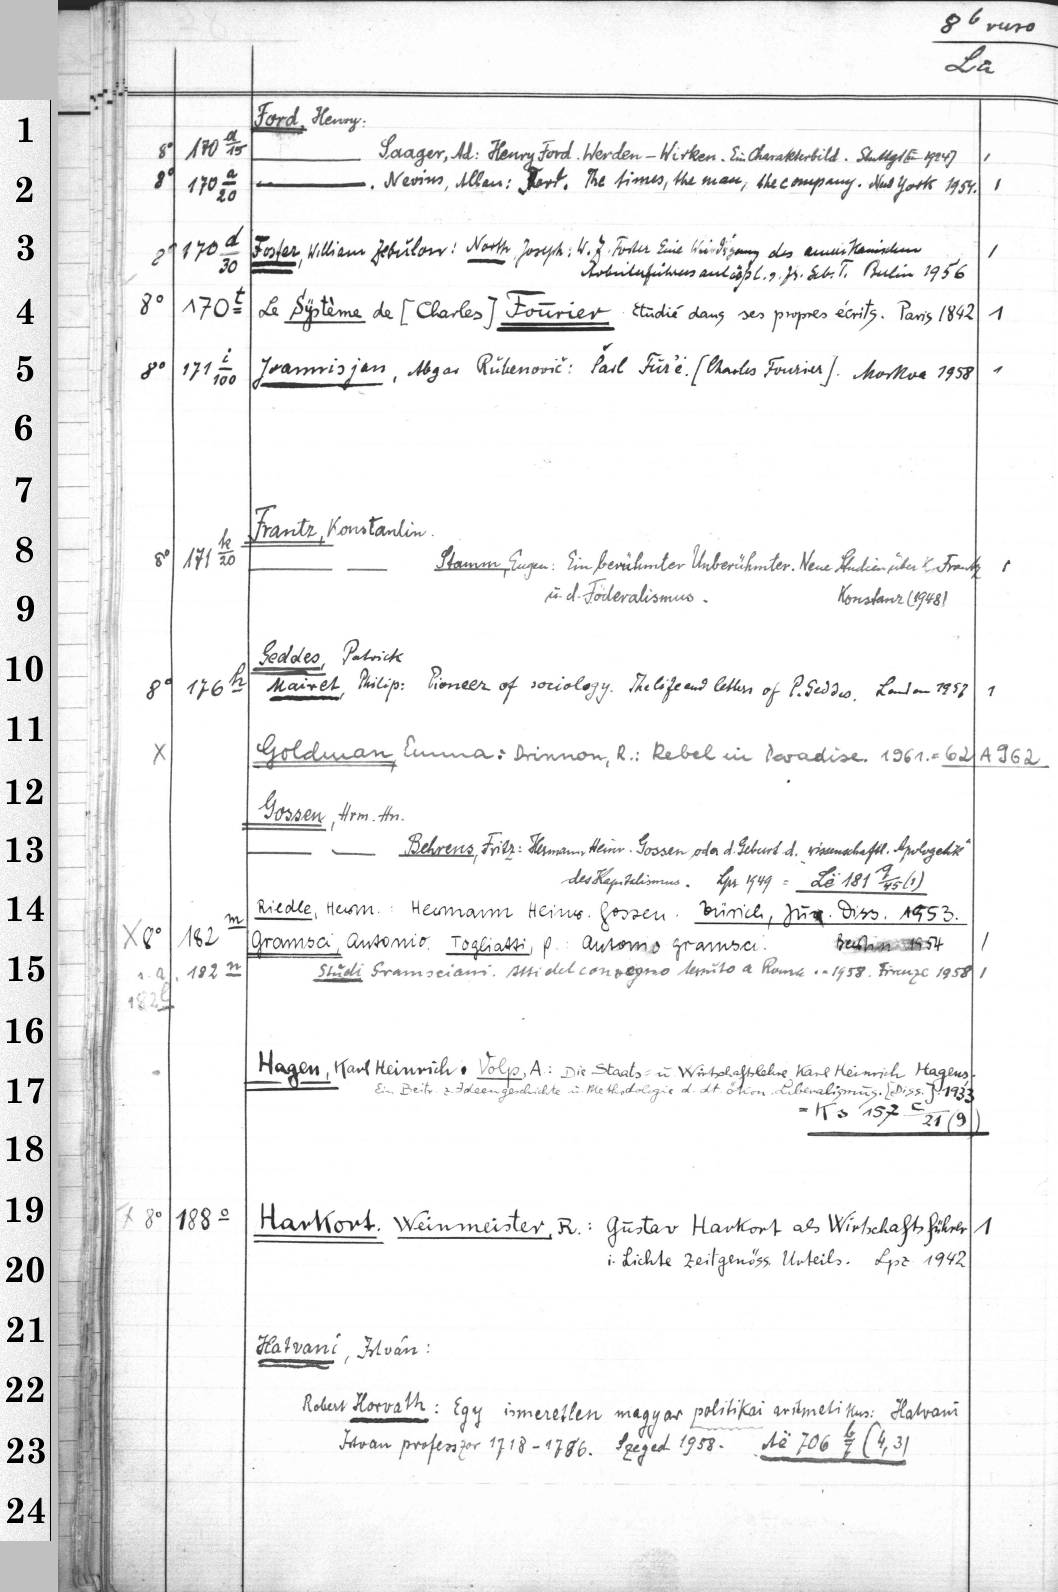 8 b verso
Lä
1
Ford, Henry:
8° 170 a/15 Saager, Ad: Henry Ford. Werden – Wirken. Ein Charakterbild. Stuttgt 1924 1
2 8° 170 a/20 . Nevins, Allan: Ford. The times, the man, the company. New York 1954. 1
3 8° 170 d/30 Foster, William Zebulon: North, Joseph: W. Z. Foster Eine Würdigung des amerikanischen 1
Arbeiterführers anläßl. s. 75. Geb. T. Berlin 1956
4 8° 170 t Le Système de [Charles] Fourier Étudié dans ses propres écrits. Paris 1842 1
5 8° 171 i/100 Joannisjan, Abgar Rubenovič: Šarl Fur'é. [Charles Fourier]. Moskva 1958 1
6
7
Frantz, Konstantin.
8 8° 171 k/20 Stamm, Eugen: Ein berühmter Unberühmter. Neue Studien über K. Frantz 1
9 u. d. Föderalismus. Konstanz (1948)
10 Geddes, Patrick
8° 176 h Mairet, Philip: Pioneer of sociology. The life and letters of P. Geddes. London 1957 1
11
X Goldman, Emma: Drinnon, R.: Rebel in Paradise. 1961. = 62 A 962
12
Gossen, Hrm. Hn.
13 Behrens, Fritz: Hermann Heinr. Gossen oder d. Geburt d. "wissenschaftl. Apologetik"
des Kapitalismus. Lpz 1949 = Lë 181 q/45 (1)
14 Riedle, Herm.: Hermann Heinr. Gossen. Zürich, Jur. Diss. 1953.
X 8° 182 m Gramsci, Antonio. Togliatti, P.: Antonio Gramsci. Berlin 1954 1
15 s. a. 182 n Studi Gramsciani. Atti del convegno tenuto a Roma .. 1958. Firenze 1958 1
182 l
16
Hagen, Karl Heinrich. Volp, A: Die Staats- u Wirtschaftslehre Karl Heinrich Hagens.
17 Ein Beitr. z. Ideengeschichte u. Methodologie d. dt. ökon. Liberalismus. [Diss.] 1933
= Ks 157 c/21 (9)
18
19 X 8° 188 o Harkort. Weinmeister, R.: Gustav Harkort als Wirtschaftsführer 1
20 i. Lichte zeitgenöss. Urteils. Lpz 1942
21
Hatvani, István:
22
Robert Horvath: Egy ismeretlen magyar politikai aritmetikus: Hatvani
23 Istvan professzor 1718–1786. Szeged 1958. Aë 706 b/7 (4,3)
24